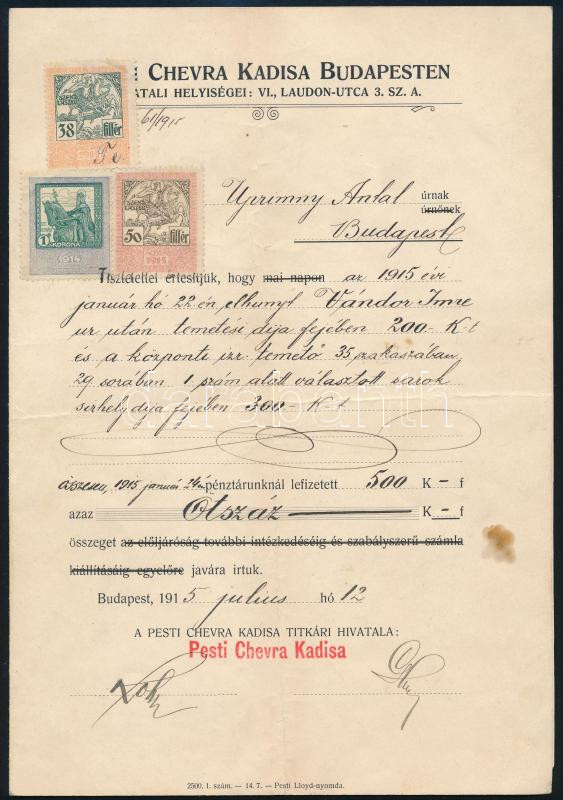 CHEVRA KADISA BUDAPESTEN
ATALI HELYISÉGEI: VI., LAUDON-UTCA 3. SZ. A.
SZENT LÁSZLÓ
38 fillér
61/1915
1 KORONA
1914
SZENT LÁSZLÓ
50 fillér
1914
Antal úrnak
úrnőnek
Budapest
Tisztelettel értesítjük, hogy mai napon az 1915 évi
január hó 22-én elhunyt Vándor Imre
ur után temetési dija fejében 200.- K-t
és a központi izr temető 35 szakaszában
29 sorában 1 szám alatt választott sarok
sirhely dija fejében 300.- K-t
darabanth
összesen, 1915 január 24én pénztárunknál lefizetett 500 K – f
azaz Ötszáz K – f
összeget az előljáróság további intézkedéséig és szabályszerű számla
kiállításáig egyelőre javára irtuk.
Budapest, 1915 julius hó 12
A PESTI CHEVRA KADISA TITKÁRI HIVATALA:
Pesti Chevra Kadisa
2500. 1. szám. — 14. 7. — Pesti Lloyd-nyomda.